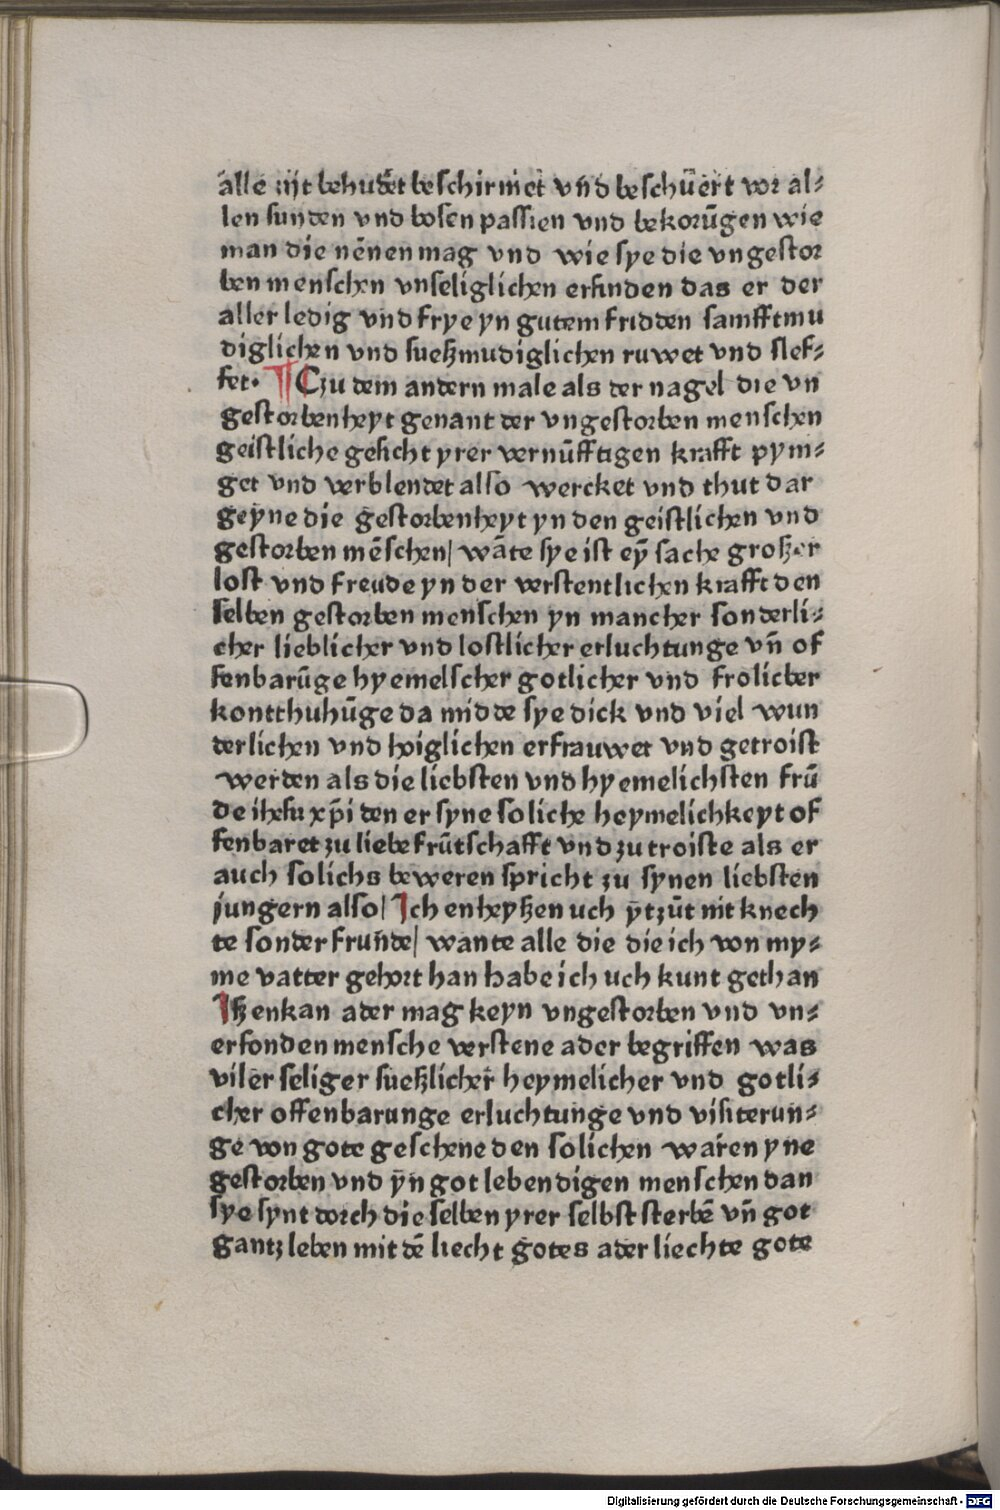 alle zijt behudet beschirmet vnd beschūert vor al⸗
len sunden vnd bosen passien vnd bekorūgen wie
man die nēnen mag vnd wie sye die vngestor
ben menschen vnseliglichen erfinden das er der
aller ledig vnd frye yn gutem fridden samfftmu
diglichen vnd sueßmudiglichen ruwet vnd slef⸗
fet. ¶ Czu dem andern male als der nagel die vn
gestorbenheyt genant der vngestorben menschen
geistliche gesicht yrer vernūfftigen krafft pyni⸗
get vnd verblendet also wercket vnd thut dar
geyne die gestorbenheyt yn den geistlichen vnd
gestorben mēschen| wāte sye ist eyn̄ sache großer
lost vnd freude yn der verstentlichen krafft den
selben gestorben menschen yn mancher sonderli⸗
cher lieblicher vnd lostlicher erluchtunge vn̄ of
fenbarūge hyemelscher gotlicher vnd frolicber
kontthuhūge da midde sye dick vnd viel wun
derlichen vnd hoiglichen erfrauwet vnd getroist
werden als die liebsten vnd hyemelichsten frū
de ihesu xp̄i den er syne soliche heymelichkeyt of
fenbaret zu liebe frūtschafft vnd zu troiste als er
auch solichs beweren spricht zu synen liebsten
jungern also| Ich enheyßen uch ytzūt nit knech
te sonder frun̄de| wante alle die die ich von my⸗
me vatter gehort han habe ich uch kunt gethan
Iß enkan ader mag keyn vngestorben vnd vn⸗
erfonden mensche verstene ader begriffen was
viler seliger sueßlicher heymelicher vnd gotli⸗
cher offenbarunge erluchtunge vnd visiterun⸗
ge von gote geschene den solichen waren yne
gestorben vnd yn got lebendigen menschen dan
sye synt dorch die selben yrer selbst sterbē vn̄ got
gantz leben mit dē liecht gotes ader liechte gote
Digitalisierung gefördert durch die Deutsche Forschungsgemeinschaft - DFG